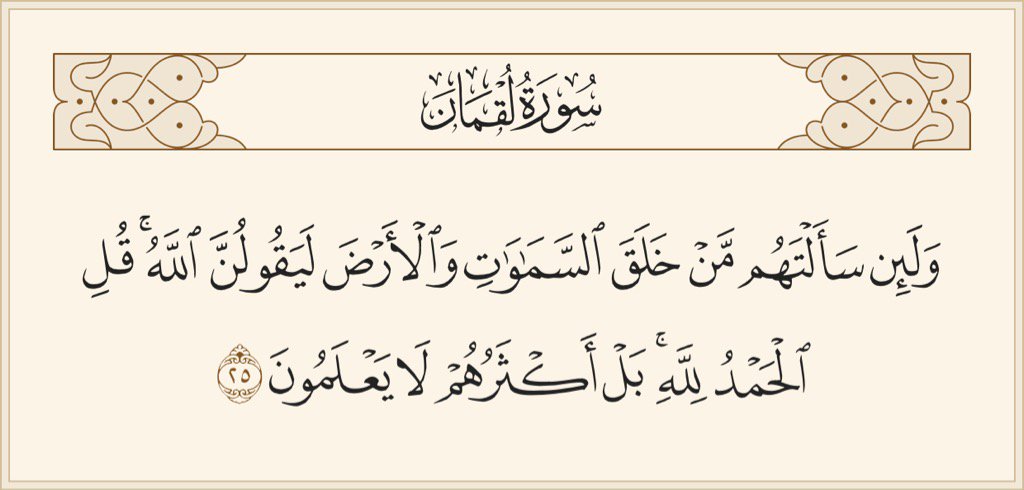 سُورَةُ لُقۡمَانَ
وَلَئِن سَأَلۡتَهُم مَّنۡ خَلَقَ ٱلسَّمَٰوَٰتِ وَٱلۡأَرۡضَ لَيَقُولُنَّ ٱللَّهُۚ قُلِ
ٱلۡحَمۡدُ لِلَّهِۚ بَلۡ أَكۡثَرُهُمۡ لَا يَعۡلَمُونَ ٢٥